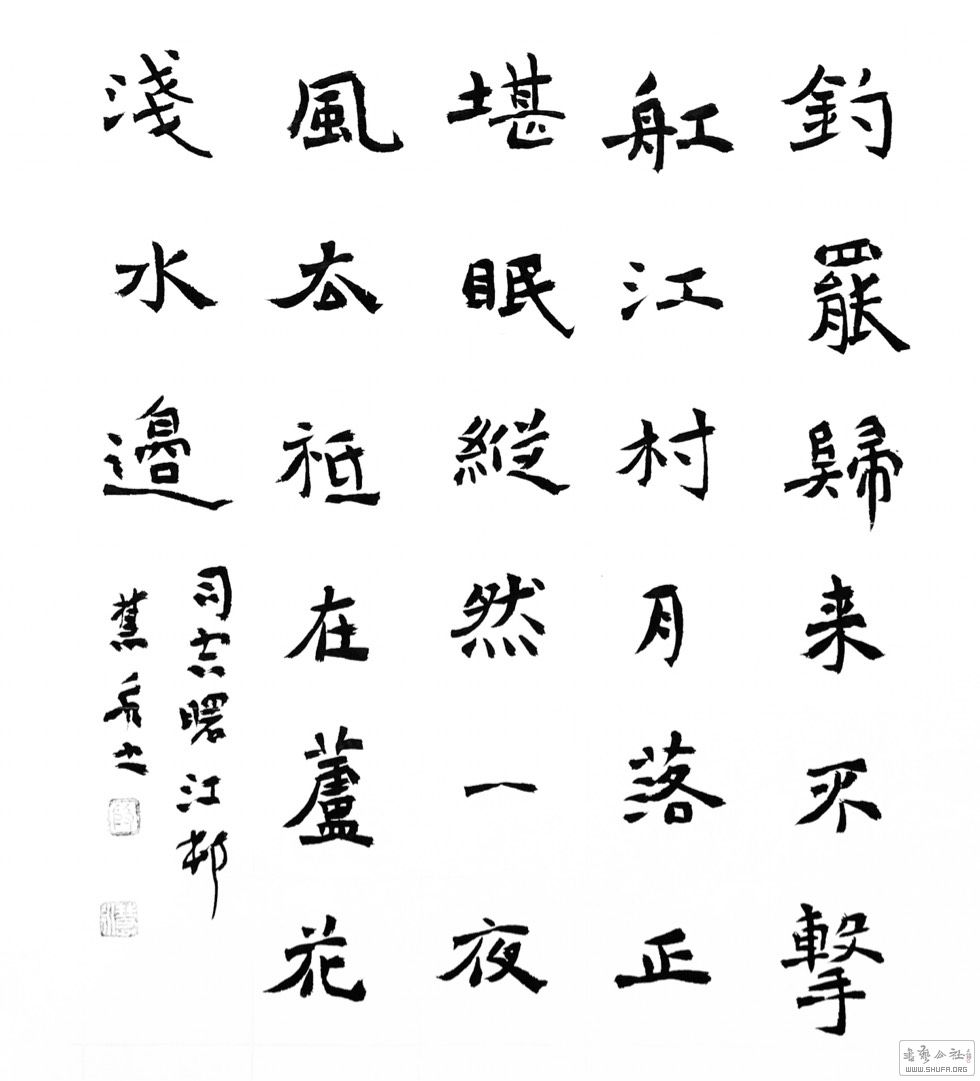 釣罷歸来不擊
舡江村月落正
堪眠縱然一夜
風厺祗在蘆花
淺水邊
司空曙江邨
書藝公社
WWW.SHUFA.ORG